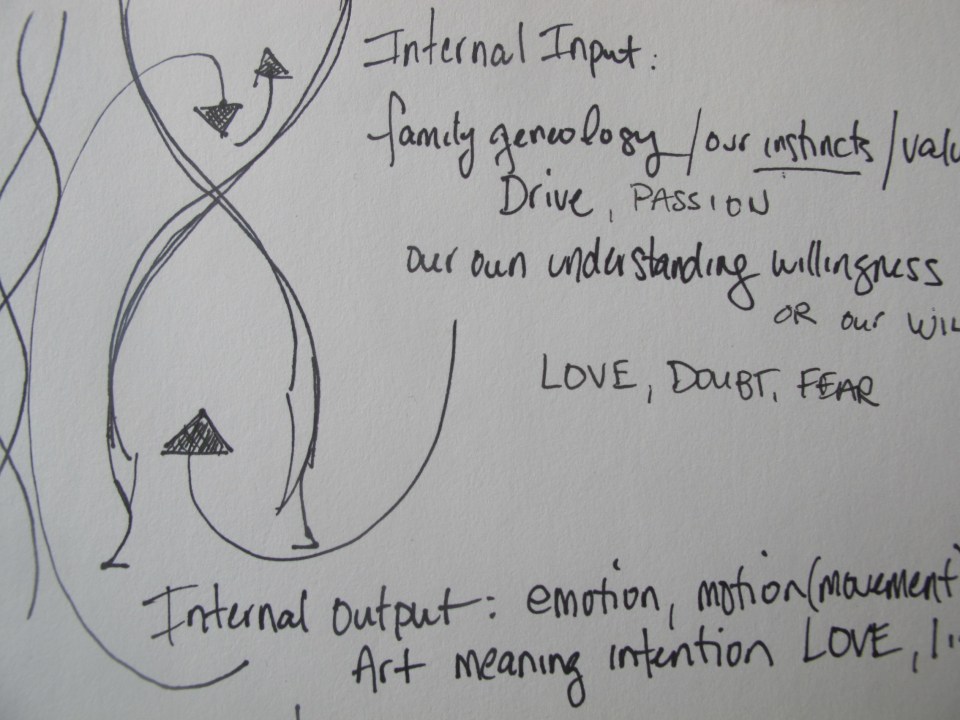 Internal Input:
family geneology / our instincts / valu
Drive, PASSION
our own understanding willingness
OR our WIL
LOVE, DOUBT, FEAR
Internal output: emotion, motion (movement)
Art meaning intention LOVE, li